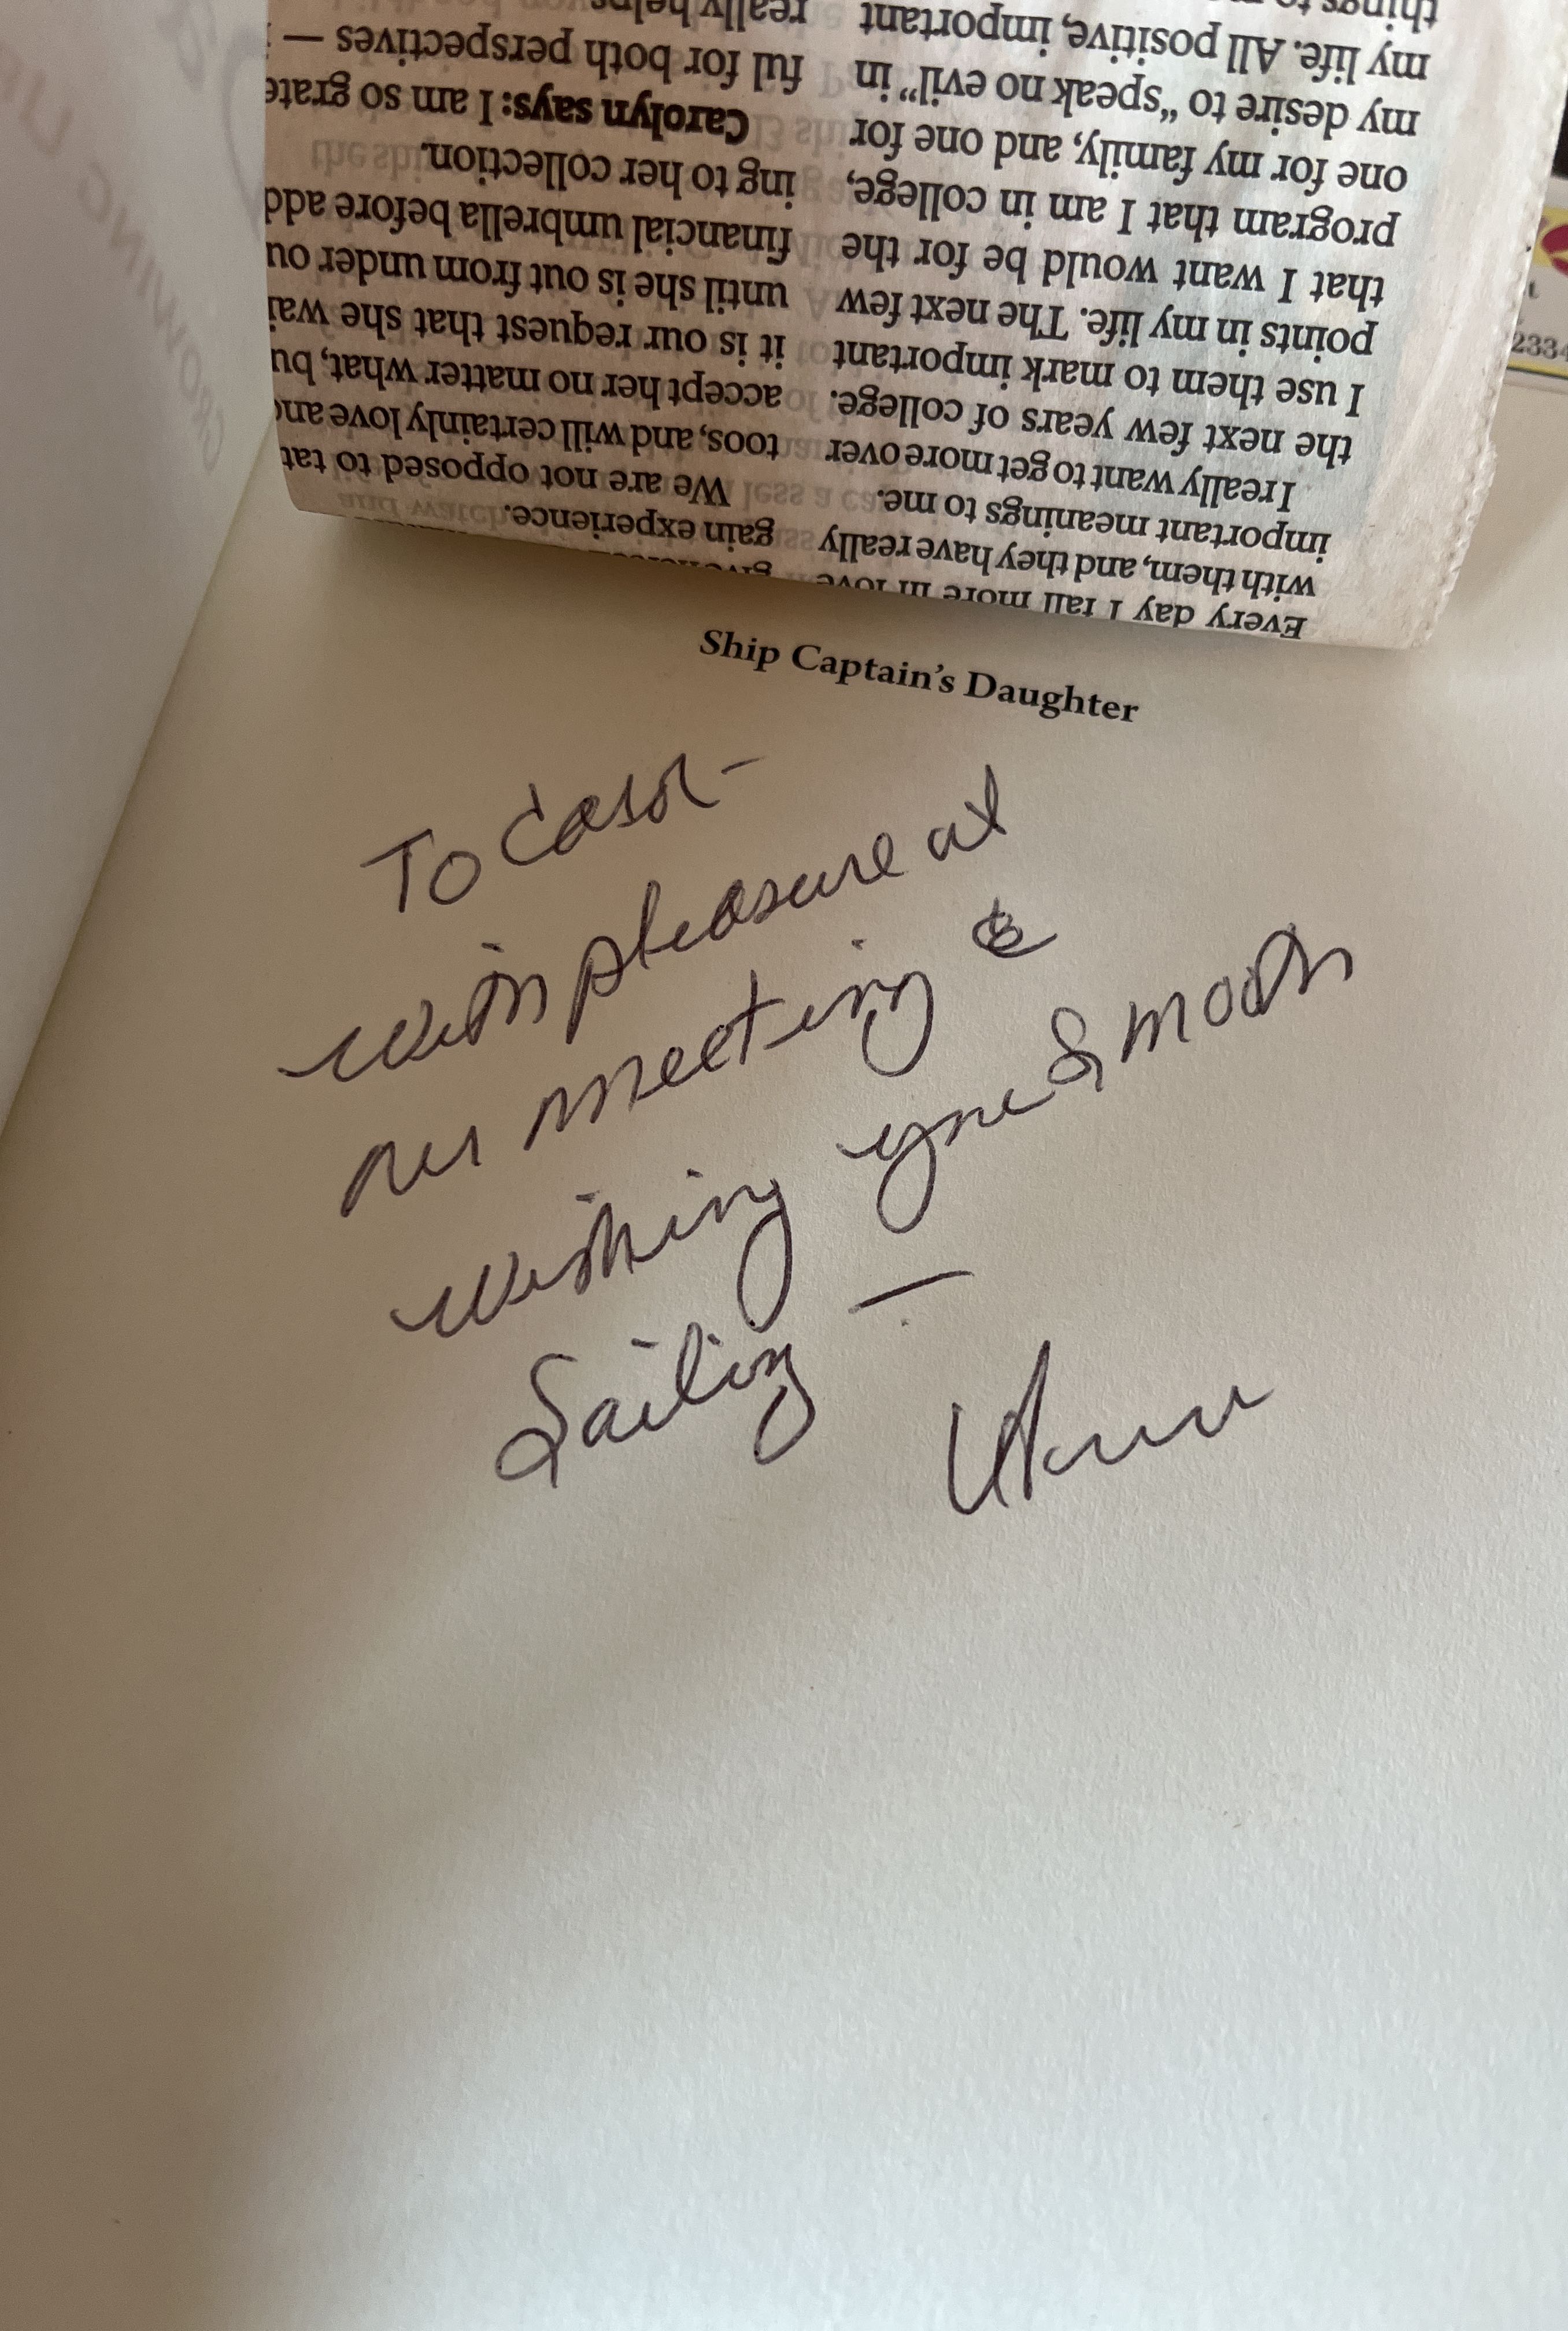 Every day I fall more in love
with them, and they have really
important meanings to me.
I really want to get more over
the next few years of college.
I use them to mark important
points in my life. The next few
that I want would be for the
program that I am in college,
one for my family, and one for
my desire to “speak no evil” in
my life. All positive, important
things to
gain experience.
We are not opposed to tat
toos, and will certainly love and
accept her no matter what, bu
it is our request that she wai
until she is out from under ou
financial umbrella before add
ing to her collection.
Carolyn says: I am so grate
ful for both perspectives —
really helps
Ship Captain’s Daughter
To Carol –
with pleasure at
our meeting &
wishing you Smooth
Sailing —
2334